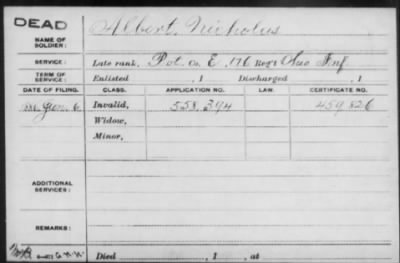 DEAD
NAME OF SOLDIER:
Albert, Nicholus
SERVICE:
Late rank, Pvt. Co. E, 176 Reg't Ohio Inf
TERM OF SERVICE:
Enlisted , 1 Discharged , 1
DATE OF FILING. CLASS. APPLICATION NO. LAW. CERTIFICATE NO.
Jan. 6. Invalid, 558.394 459.826
Widow,
Minor,
ADDITIONAL SERVICES:
REMARKS:
Died , 1 , at